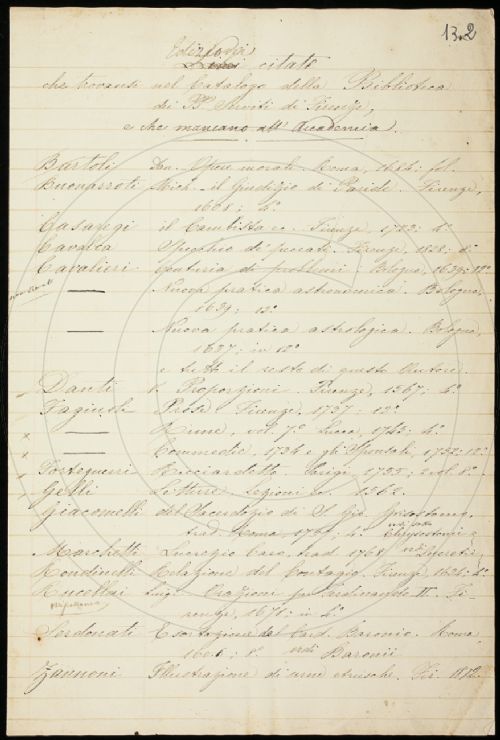 13.2
Edizioni
citate
che trovansi nel Catalogo della Biblioteca
dei PP. Serviti di Firenze,
e che mancano all' Accademia.
Bartoli Dan. Opere morali. Roma, 1684: fol.
Buonarroti Mich. il Giudizio di Paride. Firenze,
1608; 4.°
Casaregi il Cambista ec. Firenze, 1723: 4.°
Cavalca Specchio de' peccati. Firenze, 1828: 8.°
Cavalieri Centuria di problemi Bologna, 1639: 12.°
— Nuova pratica astronomica. Bologna,
1639; 12.°
— Nuova pratica astrologica. Bologna,
1637; in 12.°
e tutto il resto di questo Autore.
Danti Proporzioni. Firenze, 1567; 4.°
Fagiuoli Prose. Firenze, 1737: 12.°
— Rime, vol. 7.° Lucca, 4.°
— Commedie, 1734 e gli Sponsali, 1752: 12.°
Forteguerri Ricciardetto. Parigi, 1 vol. 8.°
Gelli Letture. Lezioni ec. 1562.
Giacomelli del Sacerdozio di S. Gio. Grisostomo,
trad. Roma, 4.°
Chrysostomi
Marchetti Lucrezio Caro, trad. 1768 vedi Lucretii
Rondinelli Relazione del Contagio. Firenze, 1634: 4.°
Rucellai Luigi Orazioni per Ferdinando II. Fi-
renze, 1671: in 4.°
Serdonati Esortazione del Card. Baronio. Roma
8.° vedi Baronii
Zannoni Illustrazione di urne etrusche. Fir. 1812.